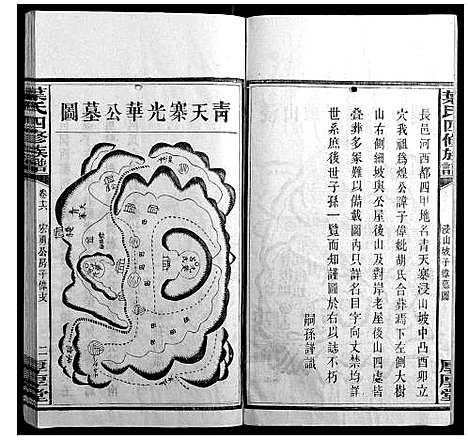 葉氏四修族譜
浸山坡子偉墓圖
敦厚堂
長邑河西都四甲地名青天寨浸山坡中凸酉卯立
穴我祖爲煌公諱子偉妣胡氏合葬焉下左側大樹
山右側細坡與公屋後山及對岸老屋後山四處皆
叠葬多冢難以備載圖內只詳名目字向丈禁均與
世系庶後世子孫一覽而知謹圖於右以誌不朽
嗣孫謹識
青天寨光華公墓圖
葉氏四修族譜
卷十六
宏勇公房子偉支
一
敦厚堂